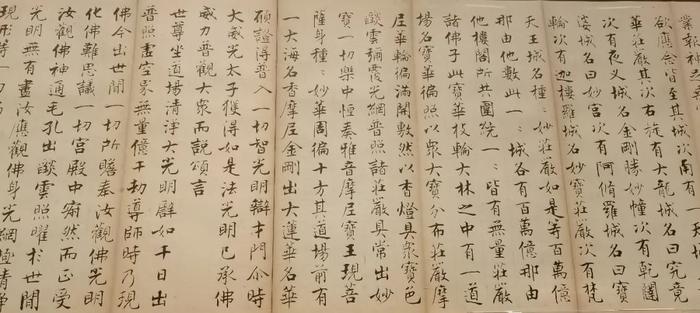 欲應念皆至其城次南有一天城
華莊嚴其次右旋有大龍城名曰究竟
次有夜叉城名金剛勝妙幢次有乾闥
婆城名曰妙宮次有阿脩羅城名曰寶
輪次有迦樓羅城名妙寶莊嚴次有梵
天王城名種〻妙莊嚴如是等百萬億
那由他數此一〻城各有百萬億那由
他樓閣所共圍繞一〻皆有無量莊嚴
諸佛子此寶華枝輪大林之中有一道
場名寶華徧照以衆大寶分布莊嚴摩
尼華輪徧滿開敷然以香燈具衆寶色
燄雲彌覆光網普照諸莊嚴具常出妙
寶一切樂中恒奏雅音摩尼寶王現菩
薩身種〻妙華周徧十方其道場前有
一大海名香摩尼金剛出大蓮華名華
願證得普入一切智光明辯才門尒時
大威光太子獲得如是法光明已承佛
威力普觀大衆而說頌言
世尊坐道場清淨大光明譬如千日出
普照虛空界無量億千劫導師時乃現
佛今出世間一切所瞻奉汝觀佛光明
化佛難思議一切宮殿中寂然而正受
汝觀佛神通毛孔出燄雲照曜於世間
光明無有盡汝應觀佛身光網極清淨
現形等一切